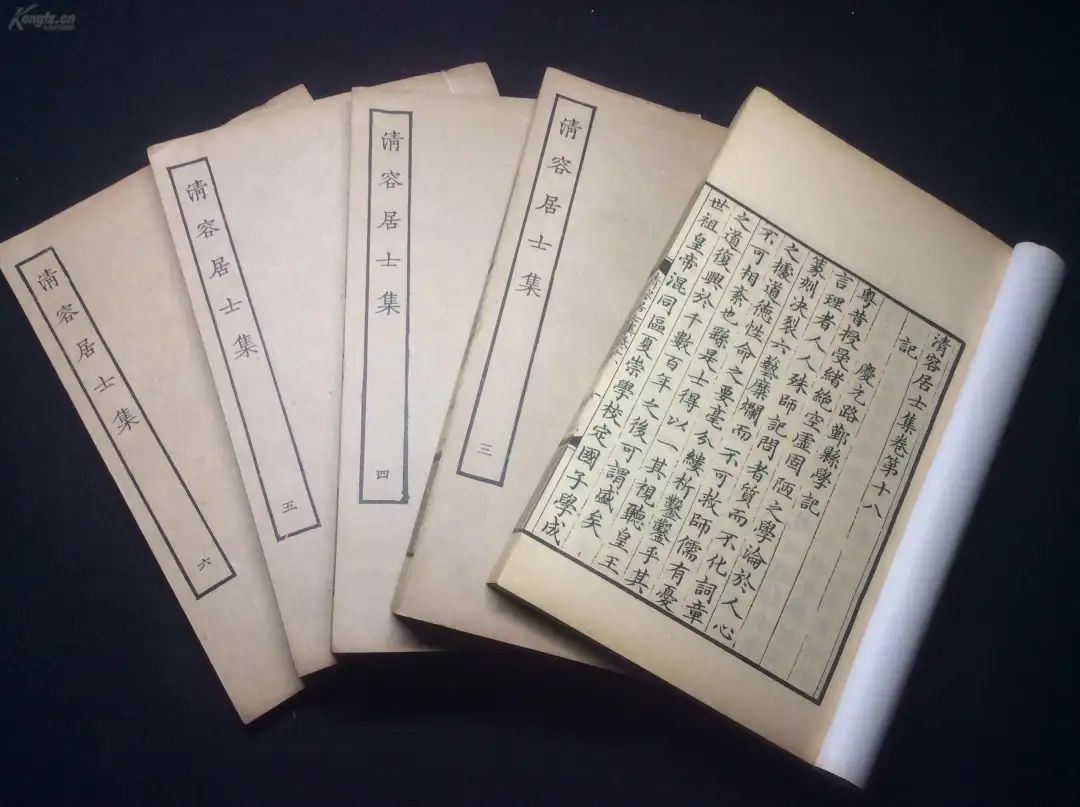 Kongfz.cn
清容居士集
六
清容居士集
五
清容居士集
四
清容居士集
三
清容居士集卷第十八
記
慶元路鄞縣學記
粵昔授受緒絕空虛固陋之學淪於人心
言理者人人殊師記問者質而不化詞章
篆刻決裂六藝糜爛而不可救師儒有憂
之據道德性命之要毫分縷析鑿鑿乎其
不可相紊也繇是士得以一其視聽皇王
之道復興於千數百年之後可謂盛矣
世祖皇帝混同區夏崇學校定國子學成